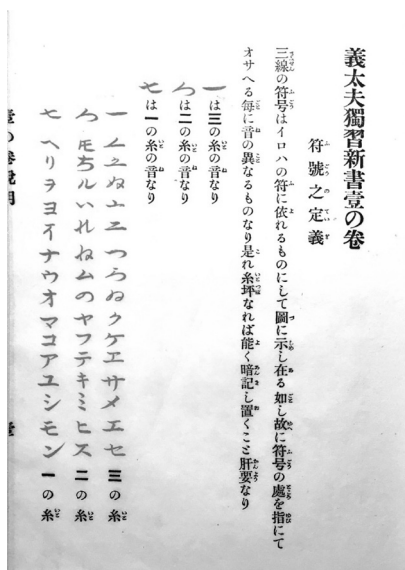 義太夫獨習新書壹の卷
符號之定義
三線の符号はイロハの符に依れるものにして圖に示し在る如し故に符号の處を指にて
オサへる每に音の異なるものなり是れ糸坪なれば能く暗記し置くこと肝要なり
一は三の糸の音なり
は二の糸の音なり
七は一の糸の音なり
一 つろゐクケエサメエセ 三の糸
ルいれねムのヤフテキミヒス 二の糸
七 ヘリヲヨイナウオマコアユシモン 一の糸
壹の卷說明 壹